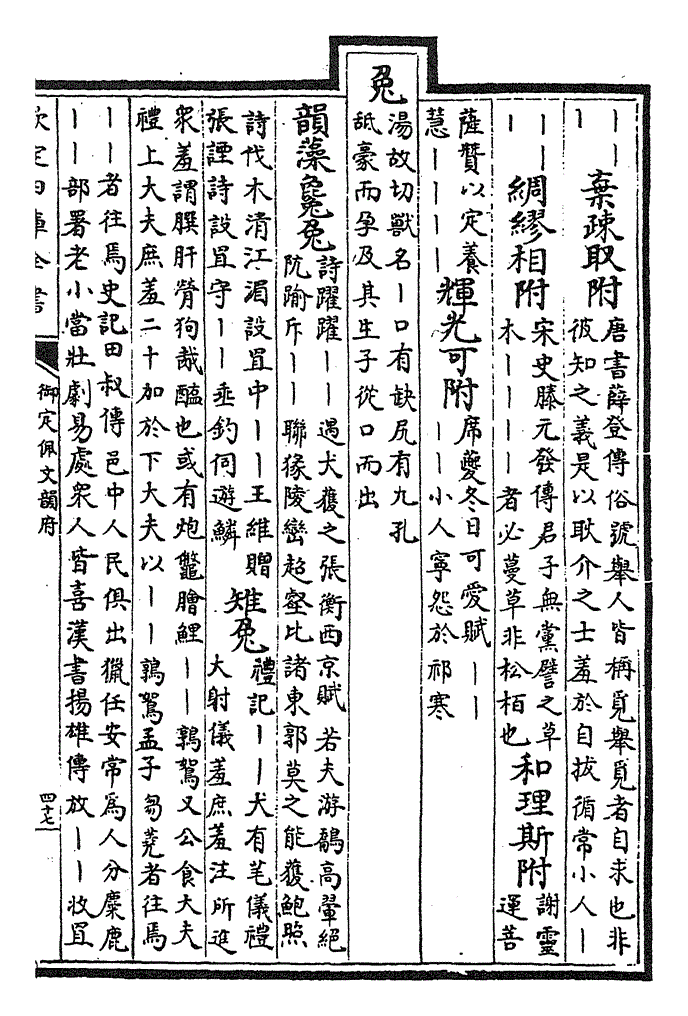 ｜｜
｜
棄疎取附
唐書薛登傳俗號舉人皆稱覓舉覓者自求也非
彼知之義是以耿介之士羞於自拔循常小人｜
｜｜
｜
綢繆相附
宋史滕元發傳君子無黨譬之草
木｜｜｜｜者必蔓草非松栢也
和理斯附
謝靈
運菩
薩贊以定養
慧｜｜｜｜
輝光可附
席夔冬日可愛賦｜｜
｜｜小人寧怨於祁寒
兔
湯故切獸名｜口有缺尻有九孔
舐豪而孕及其生子從口而出
韻藻毚兔
詩躍躍｜｜遇犬獲之張衡西京賦若夫游鷮高翬絕
阬踰斥｜｜聯猭陵巒超壑比諸東郭莫之能獲鮑照
詩伐木清江湄設罝中｜｜王維贈
張諲詩設罝守｜｜垂釣伺遊鱗
雉兔
禮記｜｜犬有芼儀禮
大射儀羞庶羞注所進
衆羞謂膞肝膋狗胾醢也或有炮鼈膾鯉｜｜鶉鴽又公食大夫
禮上大夫庶羞二十加於下大夫以｜｜鶉鴽孟子芻蕘者往焉
｜｜者往焉史記田叔傳邑中人民俱出獵任安常為人分麋鹿
｜｜部署老小當壯劇易處衆人皆喜漢書揚雄傳放｜｜收罝
欽定四庫全書
御定佩文韻府
四十七